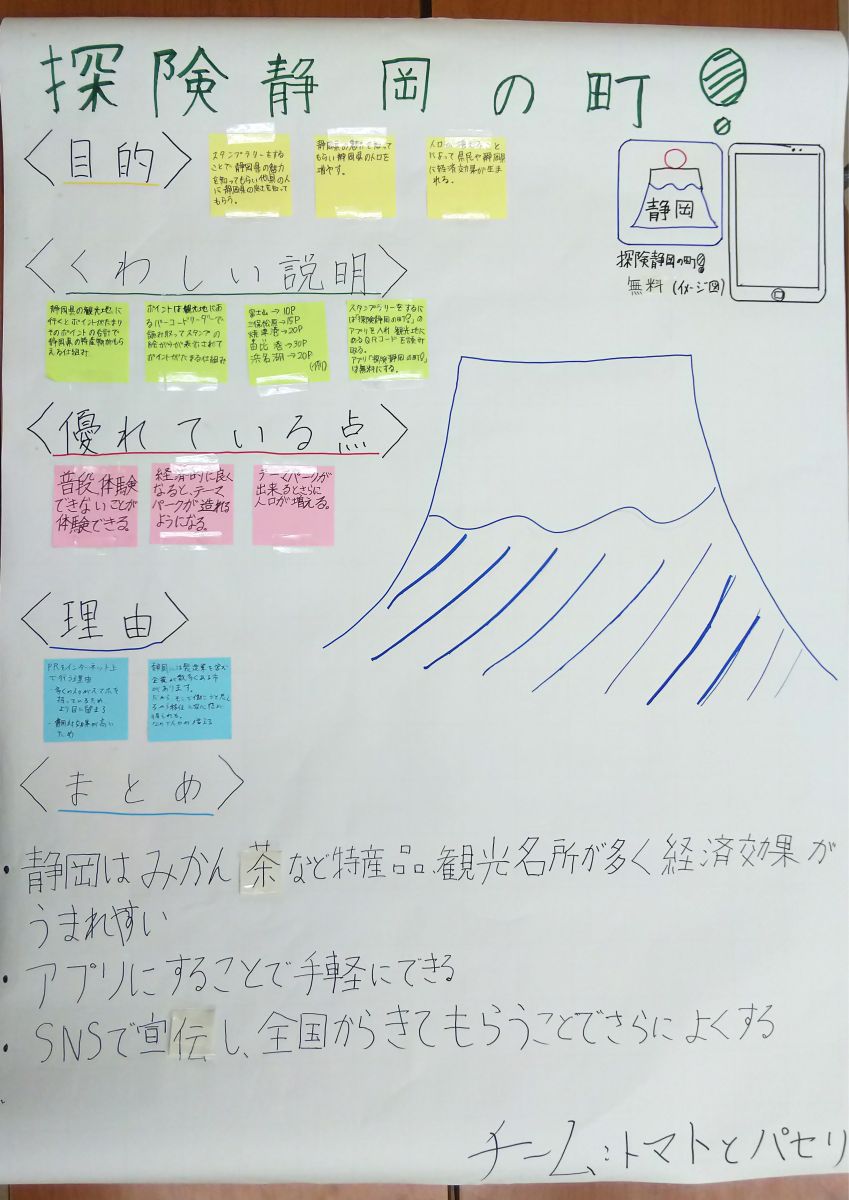 探険静岡の町!
<目的>
スタンプラリーをする
ことで静岡県の魅力
を知ってもらい他県の人
に静岡県の良さを知って
もらう。
静岡県の魅力を知って
もらい静岡県の人口を
増やす。
人口が増えることに
よって県民や静岡県
に経済効果が生ま
れる。
静岡
探険静岡の町!
無料(イメージ図)
<くわしい説明>
静岡県の観光地に
行くとポイントがたまり
そのポイントの合計で
静岡県の特産物がもら
える仕組み
ポイントは観光地にあ
るバーコードリーダーで
読み取ってスタンプの
絵がらが表示されて
ポイントがたまる仕組み
富士山→10P
三保松原→15P
焼津港→20P
由比港→30P
浜名湖→20P
(例)
スタンプラリーをするに
は「探険静岡の町!」の
アプリを入れ観光地に
あるQRコードを読み
取る。
アプリ「探険静岡の町!」
は無料にする。
<優れている点>
普段体験
できないことが
体験できる。
経済的に良く
なると、テーマ
パークが造れる
ようになる。
テーマパークが
出来るとさらに
人口が増える。
<理由>
PRをインターネット上
で行う理由
・多くの人がスマホを
持っているため
より目に留まる
・費用対効果が高い
ため
静岡には製造業を営む
企業が数多くある
があります。
<まとめ>
・静岡はみかん茶など特産品、観光名所が多く経済効果が
うまれやすい
・アプリにすることで手軽にできる
・SNSで宣伝し、全国からきてもらうことでさらによくする
チーム:トマトとパセリ